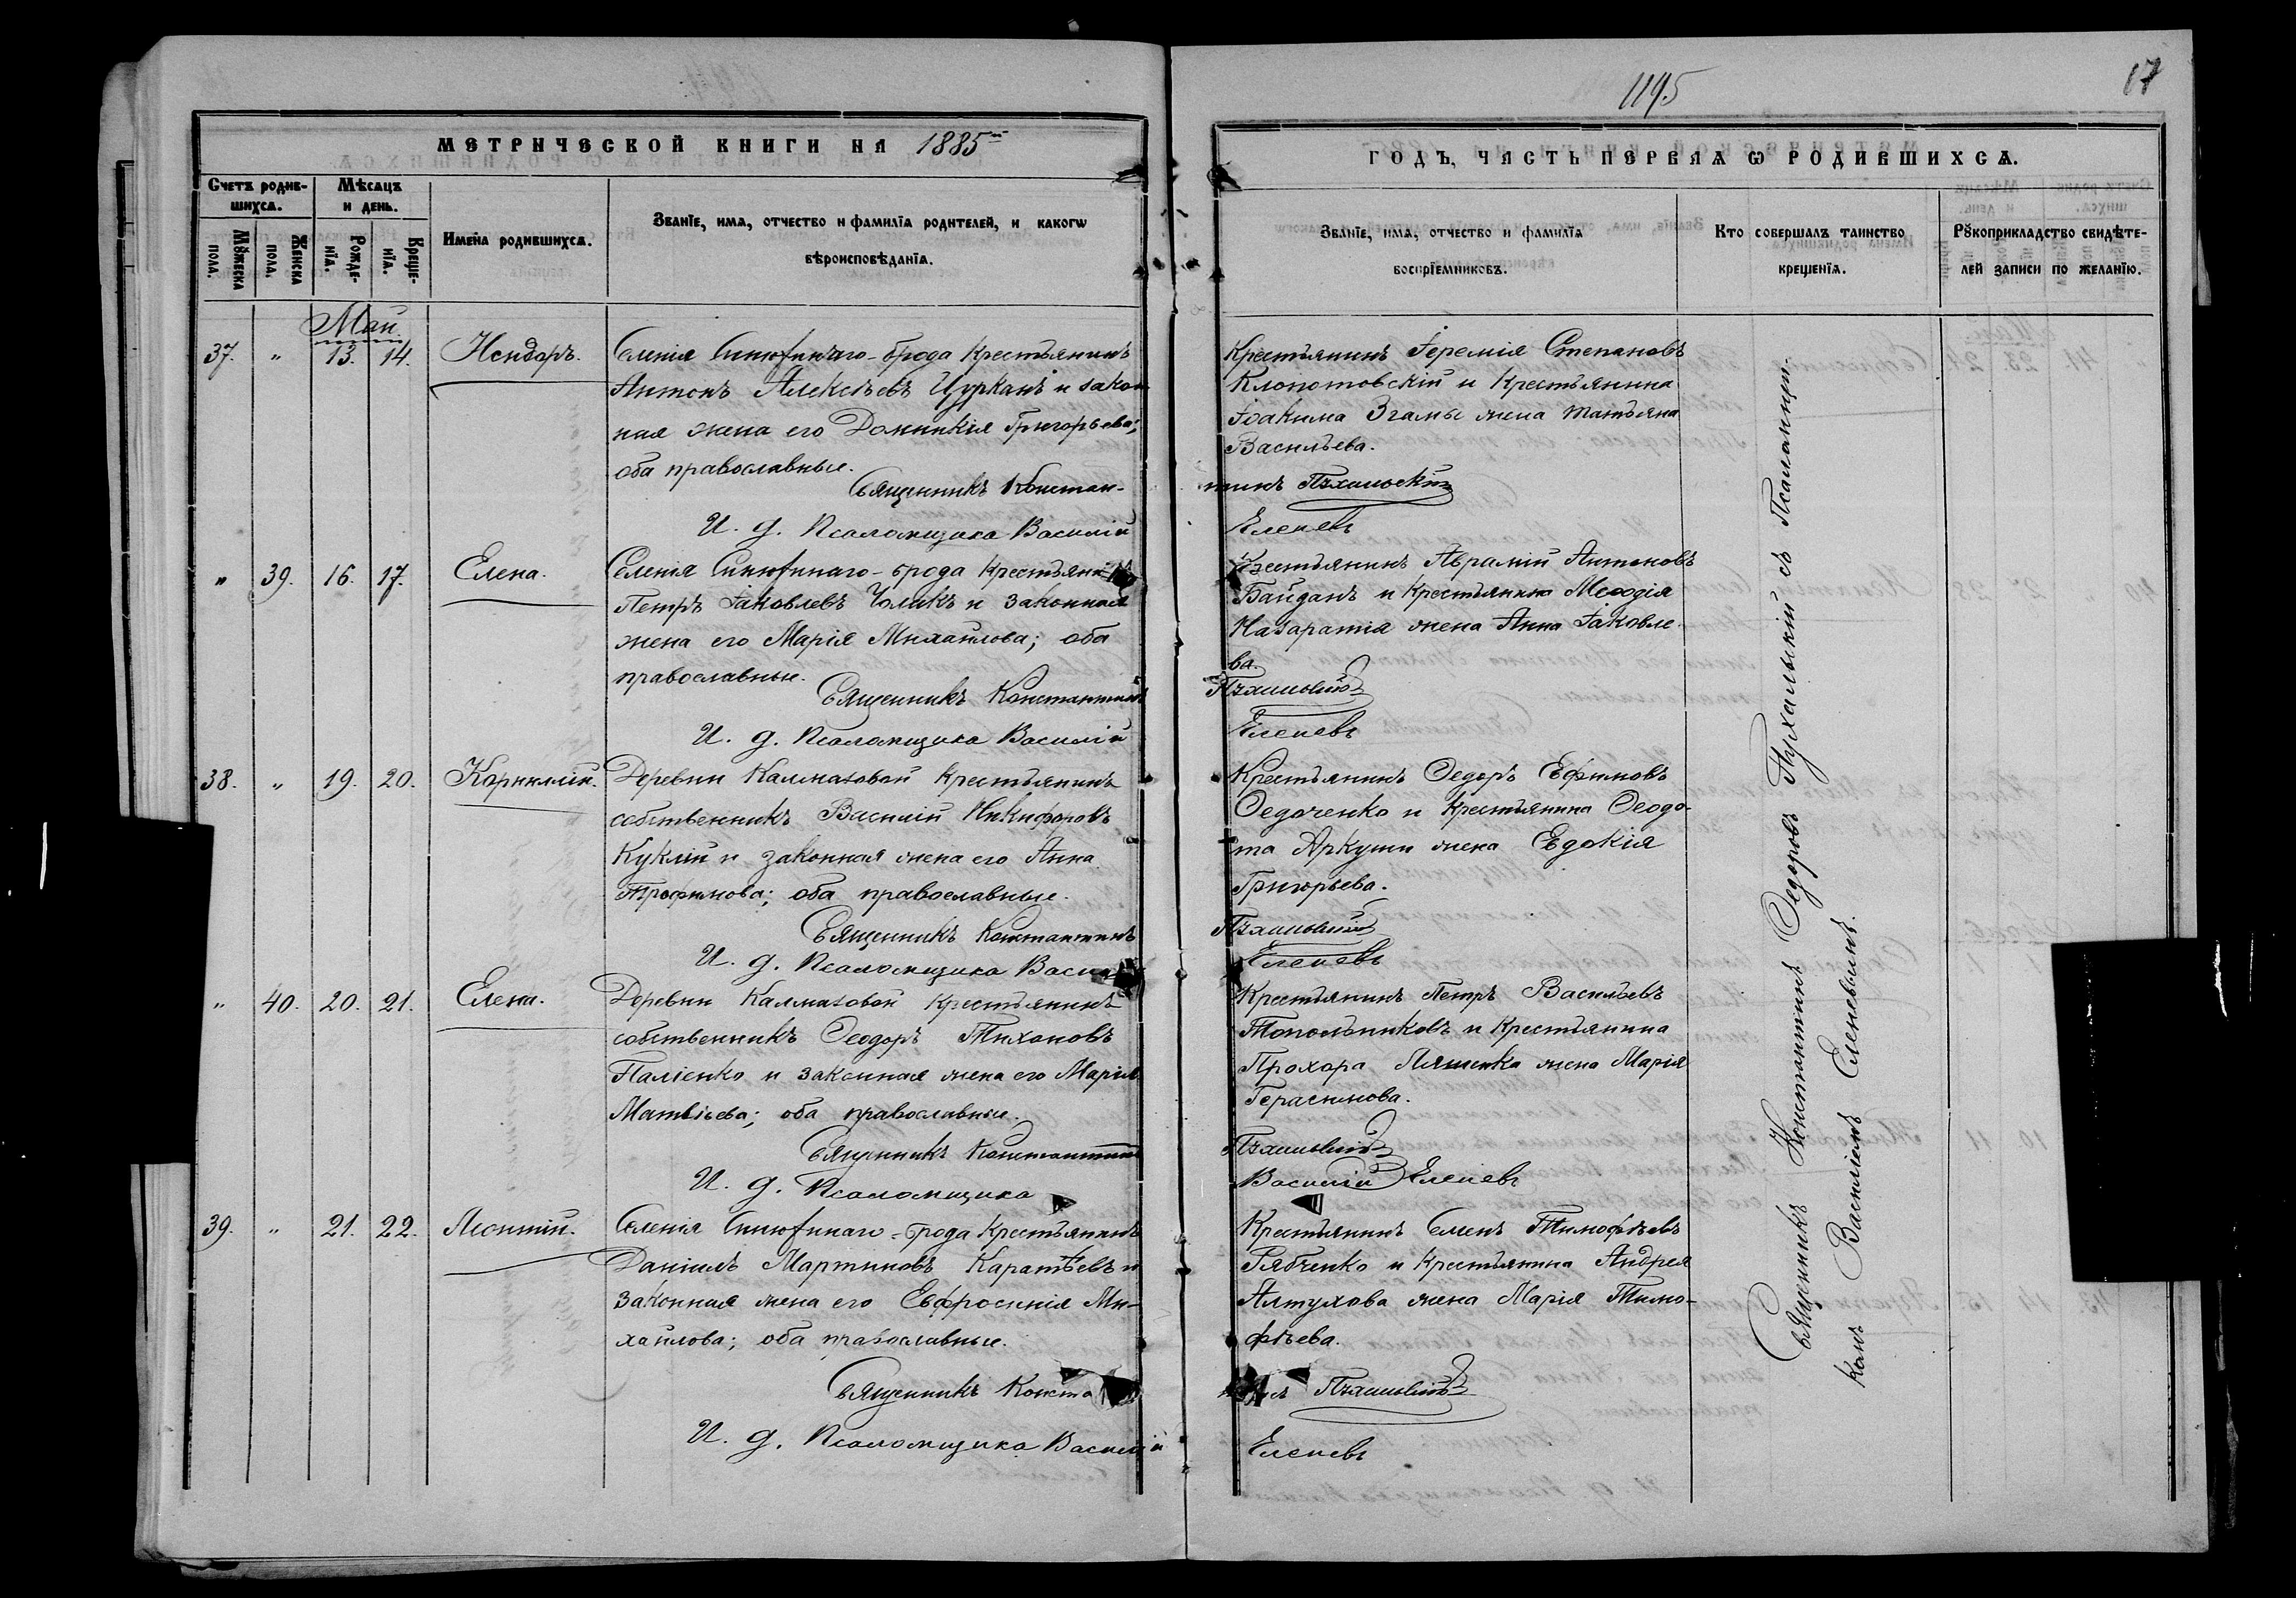 1195
17
МЕТРИЧЕСКОЙ КНИГИ НА 1885
ГОДЪ, ЧАСТЬ ПЕРВАЯ Ѡ РОДИВШИХСѦ.
Счетъ родив-
шихсѧ.
Мѣсѧцъ
и день.
Мꙋжеска
пола.
Женска
пола.
Рожде-
нїѧ.
Креще-
нїѧ.
Имена родившихсѧ.
Званїе, имѧ, отчество и фамилїѧ родителей, и какогѡ
вѣроисповѣданїѧ.
Званїе, имѧ, отчество и фамилїѧ
воспрїемниковъ.
Кто совершалъ таинство
крещенїѧ.
Рꙋкоприкладство свидѣте-
лей записи по желанїю.
Май.
37. " 13. 14.
Селенія Синюхинаго-брода Крестьянинъ
Антонъ Алексѣевъ Цурканъ и закон
ная жена его Домникія Григорьева;
оба православные.
Священникъ Констан-
И. д. Псаломщика Василій
Крестьянинъ Іеремія Степановъ
Клопотовскій и Крестьянина
Іоакима Згамы жена Татьяна
Васильева.
тинъ
Еленевъ
" 39. 16. 17. Елена.
Селенія Синюхинаго-брода Крестьянинъ
Петръ Іаковлевъ и законная
жена его Марія Михайлова; оба
православные.
Священникъ Константинъ
И. д. Псаломщика Василій
Крестьянинъ Аврамій Антоновъ
Байданъ и Крестьянина Меѳодія
Назаратія жена Анна Іаковле-
ва.
Еленевъ
38. " 19. 20. Корнилій.
Деревни Калмазовой Крестьянинъ
собственникъ Василій Никифоровъ
Куклій и законная жена его Анна
Трофимова; оба православные.
Священникъ Константинъ
И. д. Псаломщика
Крестьянинъ Ѳедоръ Ефимовъ
Ѳедоченко и Крестьянина Ѳеодо-
та Аркуши жена Евдокія
Григорьева.
Еленевъ
" 40. 20. 21. Елена.
Деревни Калмазовой Крестьянинъ
собственникъ Ѳеодоръ Тихоновъ
Паліенко и законная жена его Марія
Матвіева; оба православные.
Священникъ Константинъ
И. д. Псаломщика
Крестьянинъ Петръ Васильевъ
Топольниковъ и Крестьянина
Прохора Ляшенка жена Марія
Герасимова.
Василій Еленевъ
39. " 21. 22. Леонтій.
Селенія Синюхинаго-брода Крестьянинъ
Даніилъ Мартиновъ Каратѣевъ и
законная жена его Евфросинія Ми-
хайлова; оба православные.
Священникъ Конста
И. д. Псаломщика Василій
Крестьянинъ Семенъ Тимофѣевъ
Рябченко и Крестьянина Андрея
Алтухова жена Марія Тимо-
фѣева.
Еленевъ
Священникъ Константинъ Ѳедоровъ Пухальскій съ Псаломщи-
комъ Василіемъ Еленевымъ.